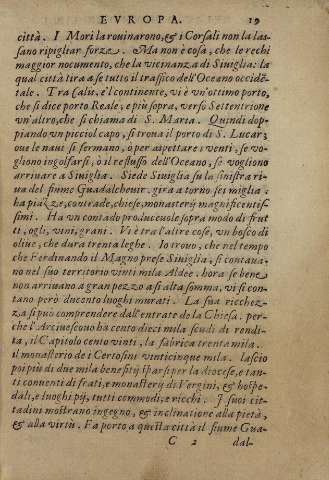 EVROPA. 19
città. I Mori la rouinarono, & i Corsali non la las-
sano ripigliar forze. Ma non è cosa, che le rechi
maggior nocumento, che la vicinanza di Siuiglia: la
qual città tira a se tutto il traffico dell'Oceano occidẽ-
tale. Tra Calis, e'l continente, vi è vn'ottimo porto,
che si dice porto Reale; e più sopra, verso Settentrione
vn'altro, che si chiama di S. Maria. Quindi dop-
piando vn picciol capo, si troua il porto di S. Lucar;
oue le naui si fermano, o per aspettare i venti, se vo-
gliono ingolfarsi, o il reflusso dell'Oceano, se vogliono
arriuare a Siuiglia. Siede Siuiglia su la sinistra ri-
ua del fiume Guadalcheuir. gira a torno sei miglia:
ha piazze, contrade, chiese, monasterij magnificentis-
simi. Ha vn contado produceuole sopra modo di frut
ti, ogli, vini, grani. Vi è tra l'altre cose, vn bosco di
oliue, che dura trenta leghe. Io trouo, che nel tempo
che Ferdinando il Magno prese Siuiglia, si contaua-
no nel suo territorio vinti mila Aldee. hora se bene
non arriuano a gran pezzo a sì alta somma, vi si con-
tano però ducento luoghi murati. La sua ricchez-
za si può comprendere dall'entrate de la Chiesa. per-
che l'Arciuescouo ha cento dieci mila scudi di rendi-
ta, il Capitolo cento vinti, la fabrica trenta mila.
il monasterio de i Certosini vinticinque mila. lascio
poi più di due mila beneficij sparsi per la diocese, e tan-
ti conuenti di frati, e monasterij di Vergini, & hospe-
dali, e luoghi pij, tutti commodi, e ricchi. I suoi cit-
tadini mostrano ingegno, & inclinatione alla pietà,
& alla virtù. Fa porto a questa città il fiume Gua-
C 2 dal-